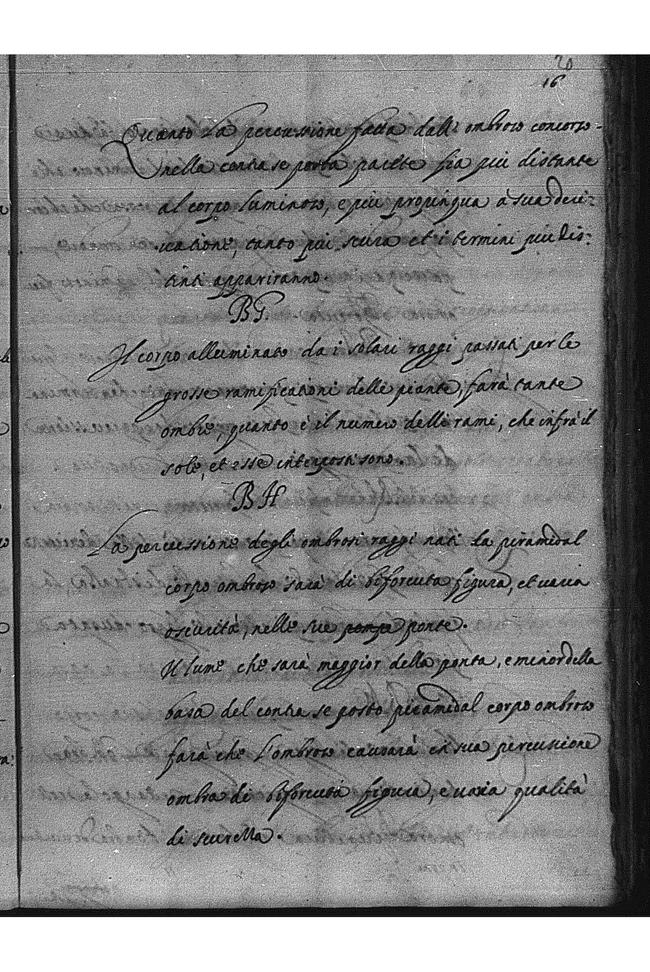 20
16
Quanto La percussione fatta dall' ombroso concorso
nella contra se posta parete fia piu distante
al corpo luminoso, e piu propinqua à sua deri-
uatione, tanto piu scura et i termini piu dis-
tinti appariranno
BG.
Il corpo alluminato da i solari raggi passati per le
grosse ramificationi delle piante, farà tante
ombre, quanto é il numero delli rami, che infrà il
sole, et esse interposti sono.
BH
La percussione degli ombrosi raggi nati da piramidal
corpo ombroso sarà di biforcuta figura, et uaria
oscurità, nelle sue ponte.
Il lume che sarà maggior della ponta, e minor della
basa del contra se posto piramidal corpo ombroso
farà che l'ombroso causarà in sua percusione
ombra di biforcuta figura, e uaria qualità
di scurella.